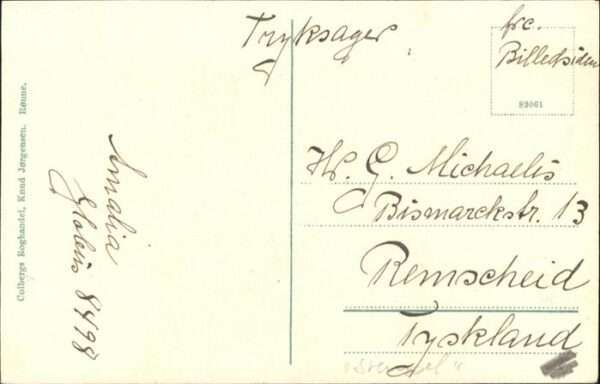 Tryksager
frc.
Billedsiden
82061
Hr. G. Michaelis
Bismarckstr. 13
Remscheid
Tyskland
Amalia
Globus 8498
Colbergs Boghandel, Knud Jørgensen. Rønne.